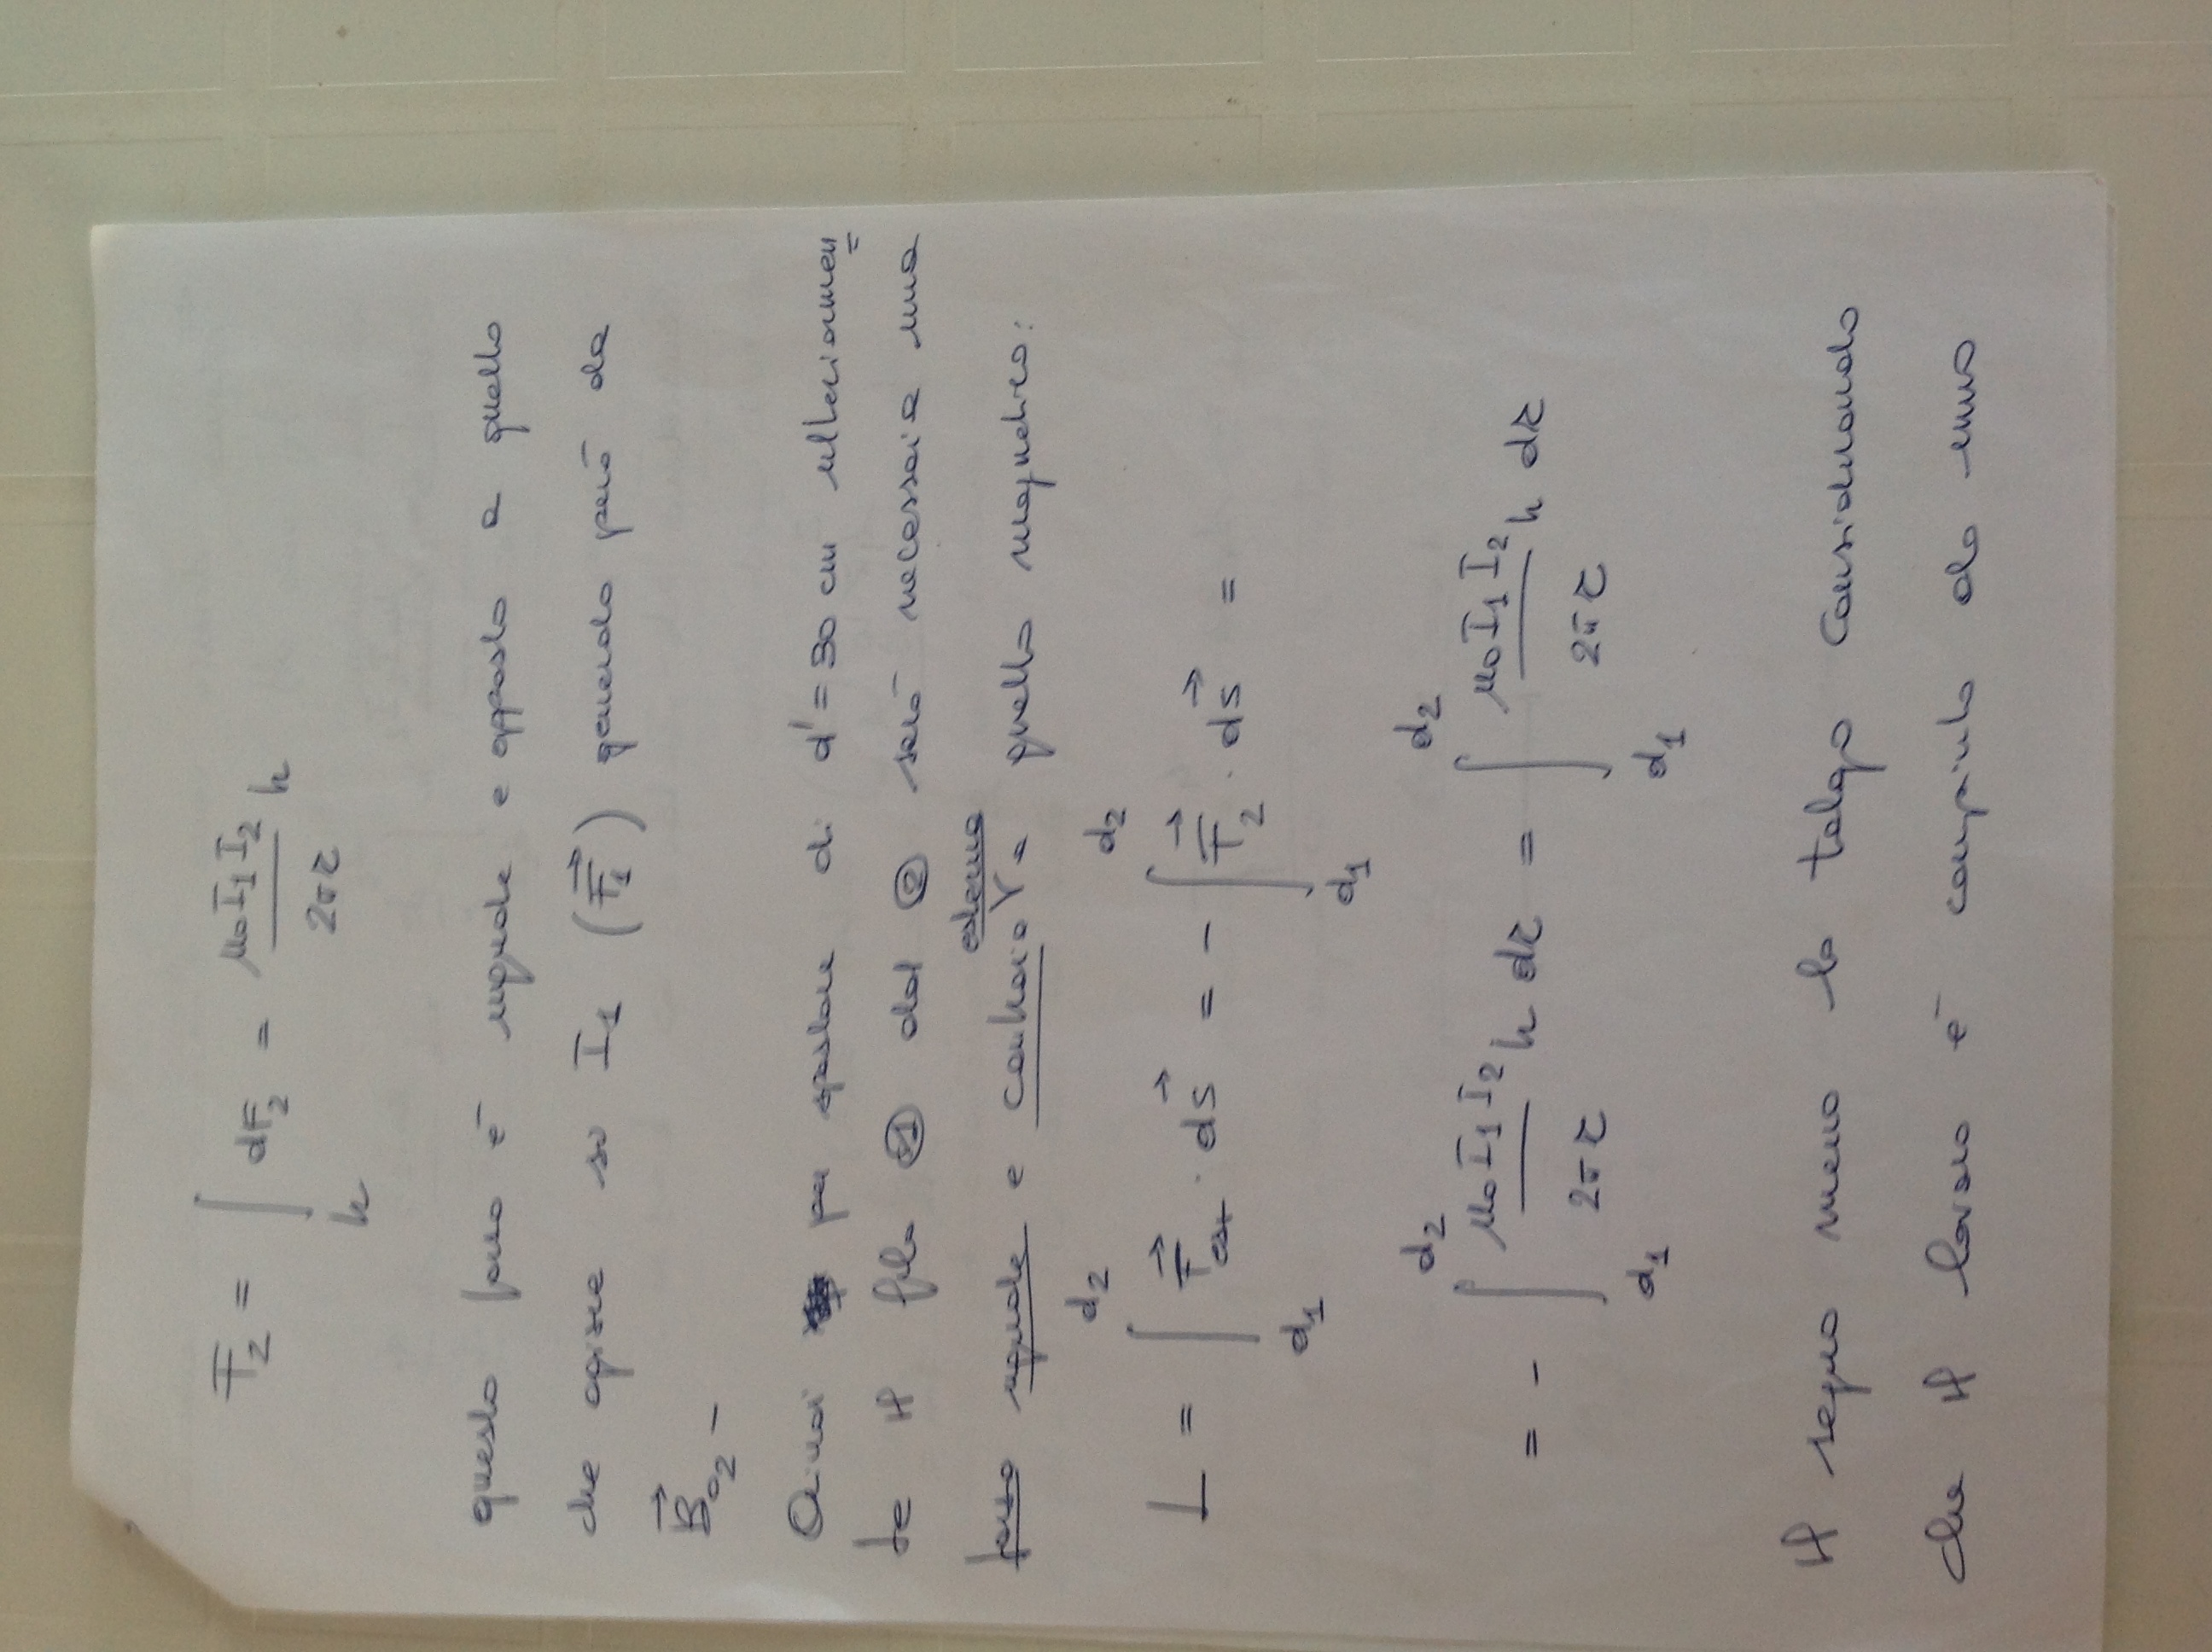 F₂ = ∫ₕ dF₂ = μ₀I₁I₂/2πr h
questa forza è uguale e opposta a quella
che agisce su I₁ (F⃗₁) generata però da
B⃗₀₂ –
Quindi per spostare di d' = 30 cm ulteriormen
te il filo ① dal ② sarà necessaria una
esterna
forza uguale e contraria V a quella magnetica:
L = ∫_{d₁}^{d₂} F⃗est · ds⃗ = – ∫_{d₁}^{d₂} F⃗₂ · ds⃗ =
= – ∫_{d₁}^{d₂} μ₀I₁I₂/2πr h dr = ∫_{d₁}^{d₂} μ₀I₁I₂/2πr h dr
Il segno meno lo tolgo considerando
che il lavoro è compiuto da una